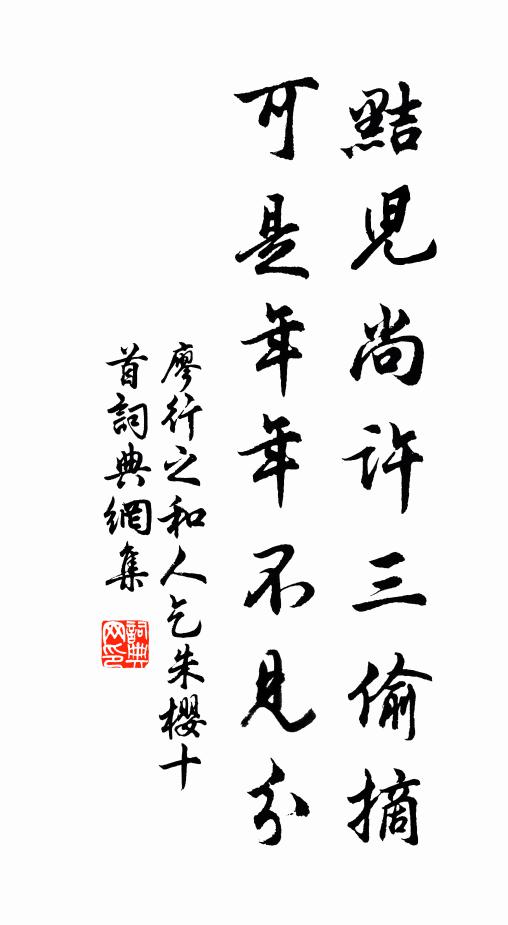 黠兒尚许三偷摘
可是年年不見分
廖行之和人乞朱櫻十
首詞典網集
詞典网印